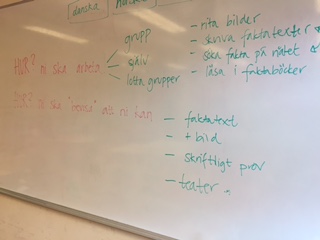 danska
grupp
- rita bilder
- skriva faktatexter
HUR? ni ska arbeta
själv
- söka fakta på nätet
lotta grupper
- läsa i faktaböcker
HUR? ni ska "bevisa" att ni kan
- faktatext
- + bild
- skriftligt prov
- teater